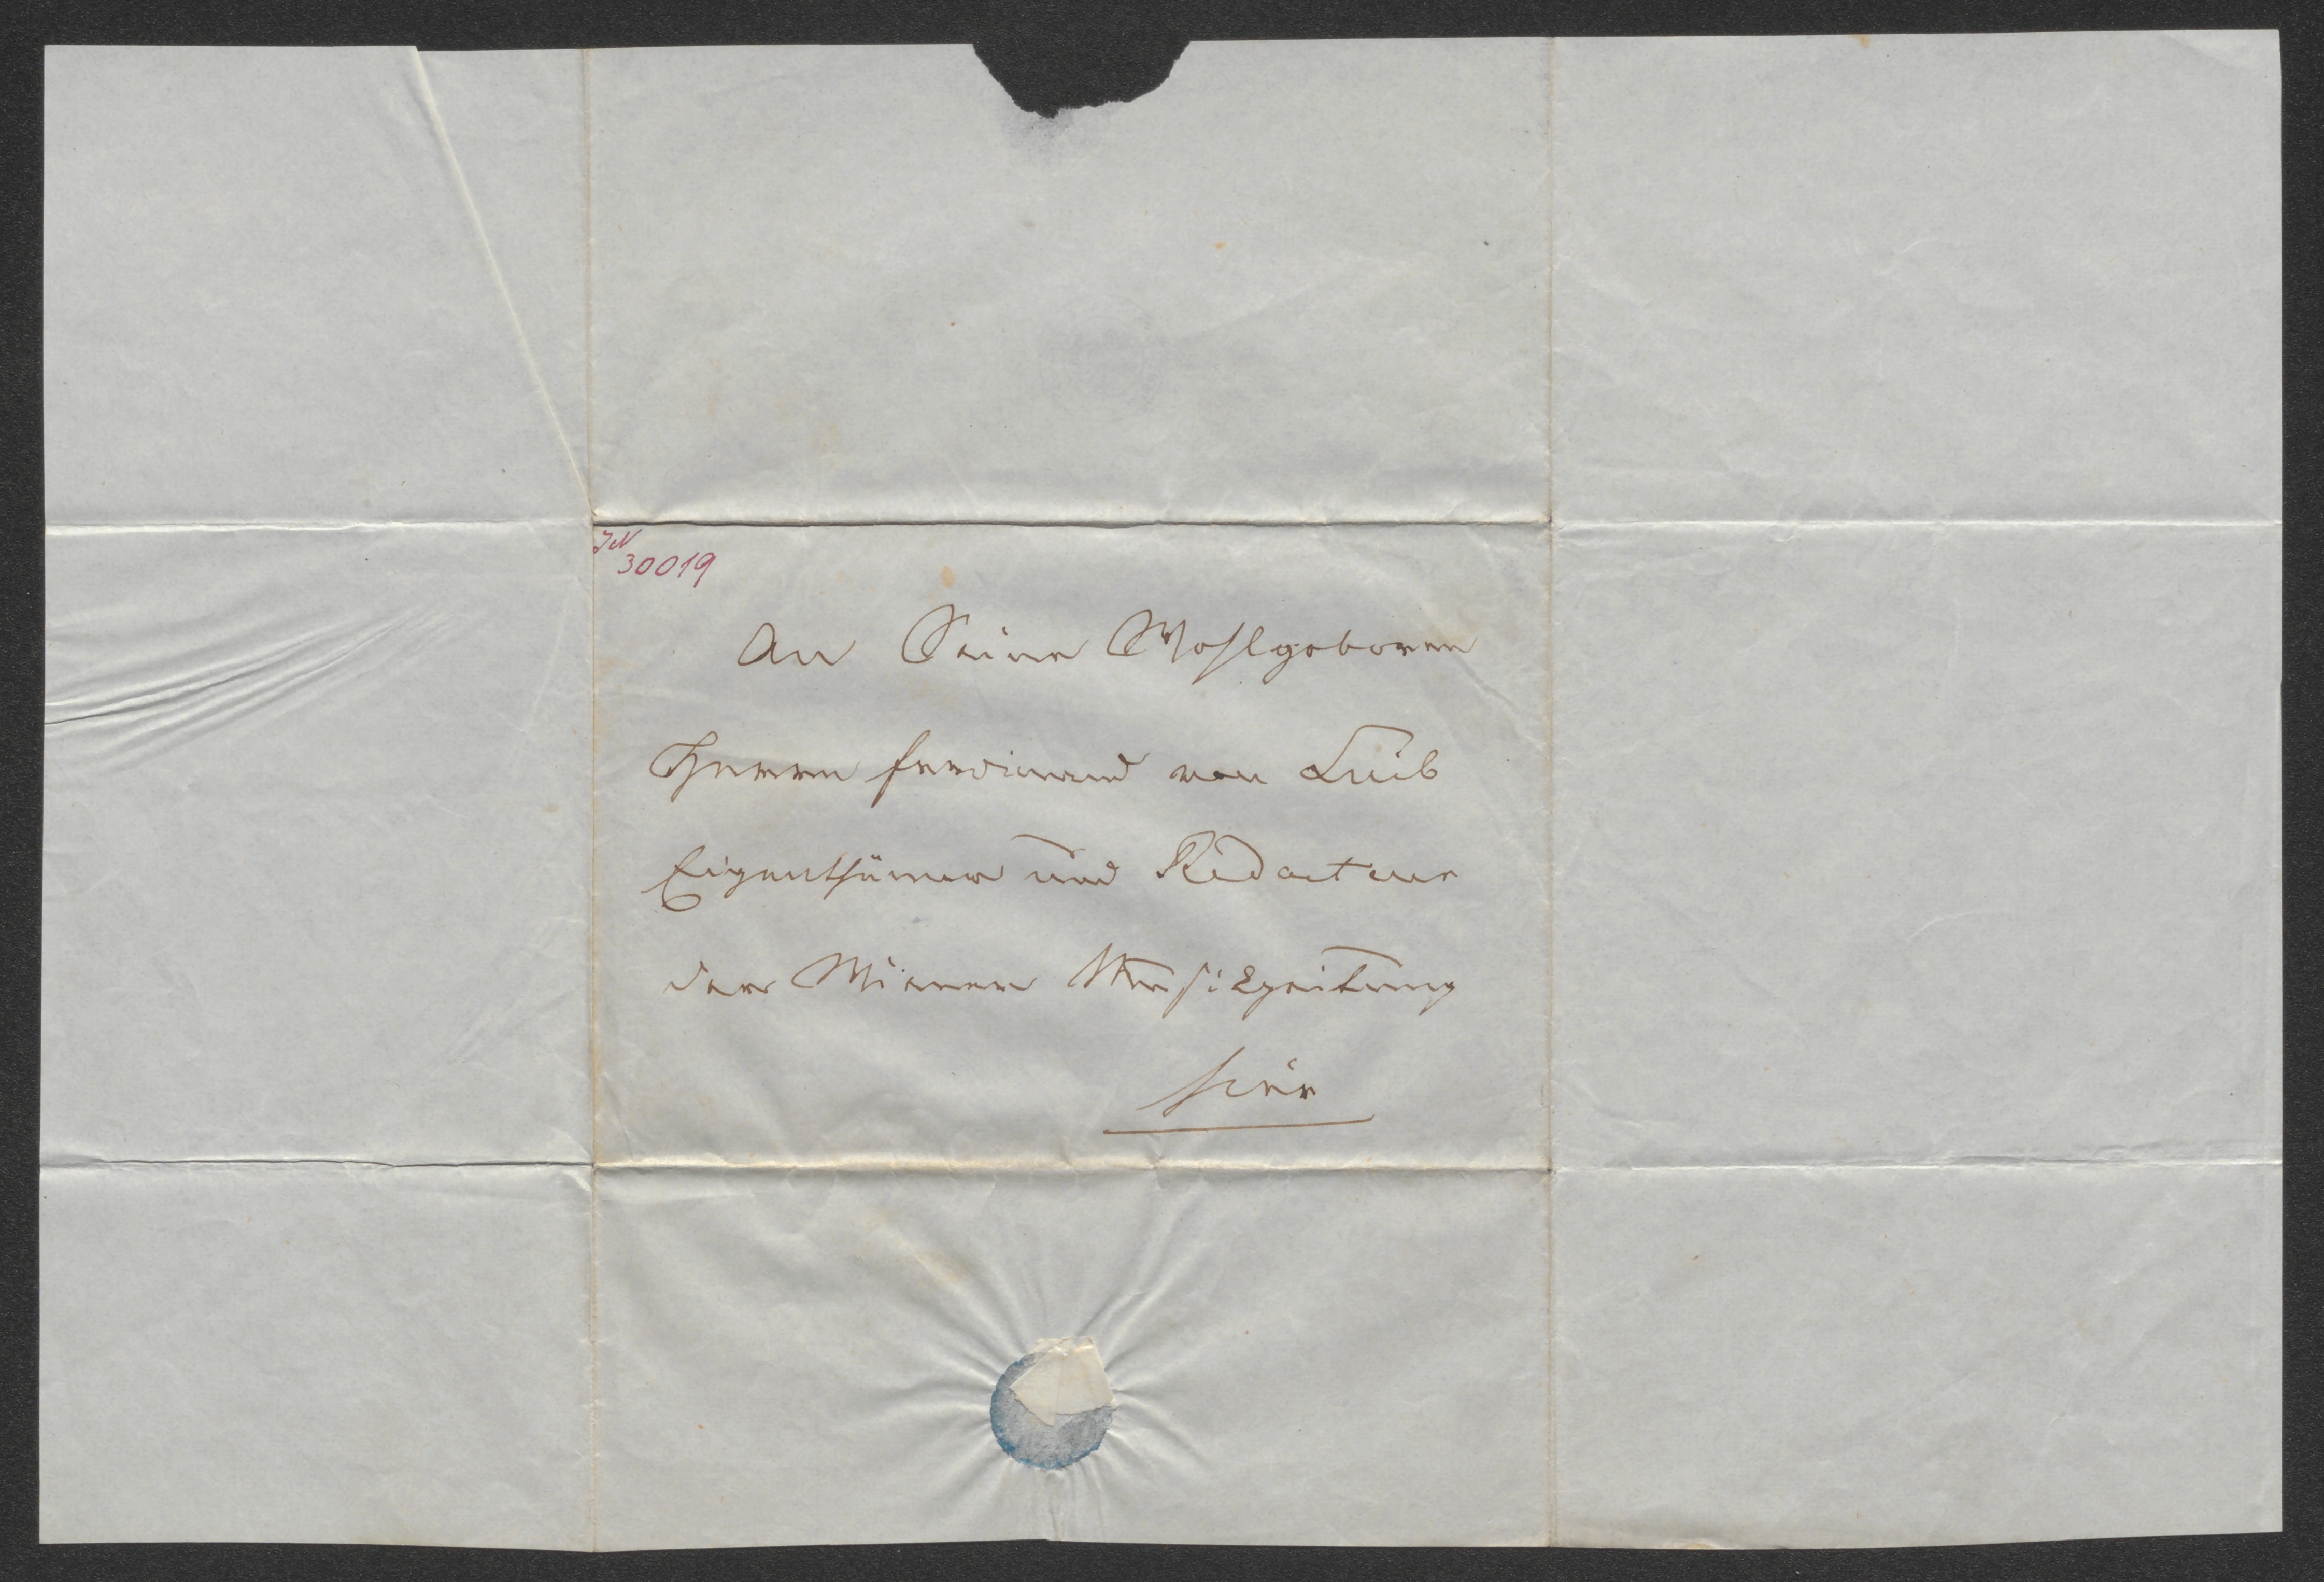 JN
30019
An Seine Wohlgeboren
Herrn Ferdinand von Luib
Eigenthümer und Redacteur
der Wiener Musikzeitung
hier